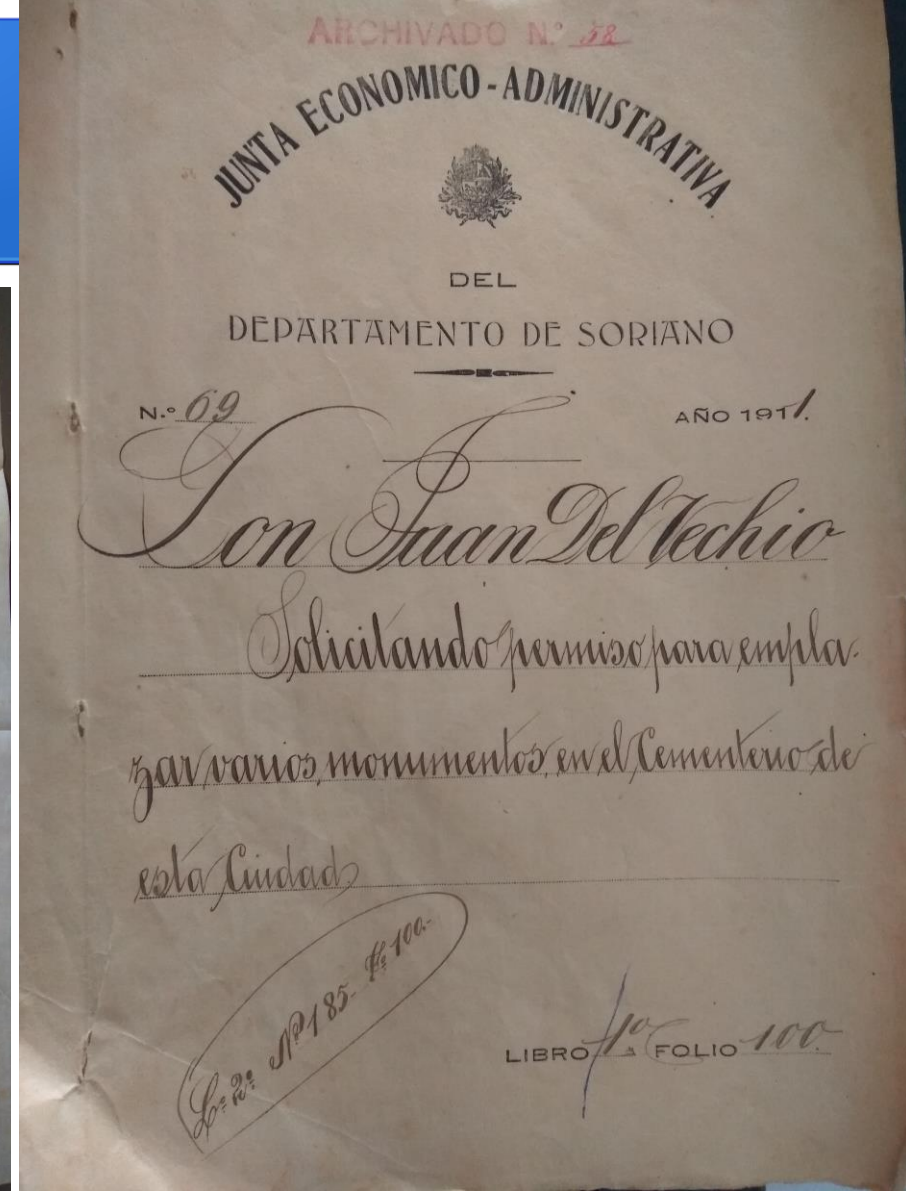 ARCHIVADO N.º 58
JUNTA ECONOMICO-ADMINISTRATIVA
DEL
DEPARTAMENTO DE SORIANO
N.º 69
AÑO 1911.
Don Juan Del Vechio
Solicitando permiso para empla-
zar varios monumentos en el Cementerio de
esta Ciudad
Lº 2º Nº 185- Fº 100-
LIBRO 1º FOLIO 100